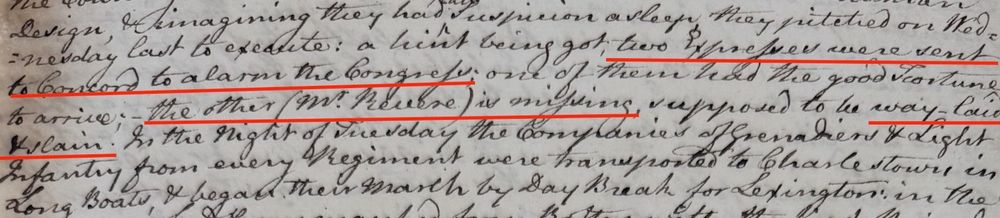 Design, & imagining they had laid Suspicion asleep, they pitched on Wed=
=nesday last to execute: a hint being got, two Expresses were sent
to Concord to alarm the Congress; one of them had the good Fortune
to arrive; - the other (Mr. Revere) is missing, supposed to be way-laid
& slain. In the Night of Tuesday the Companies of Grenadiers & Light
Infantry from every Regiment were transported to Charlestown, in
Long Boats, & began their March by Day Break for Lexington: in the